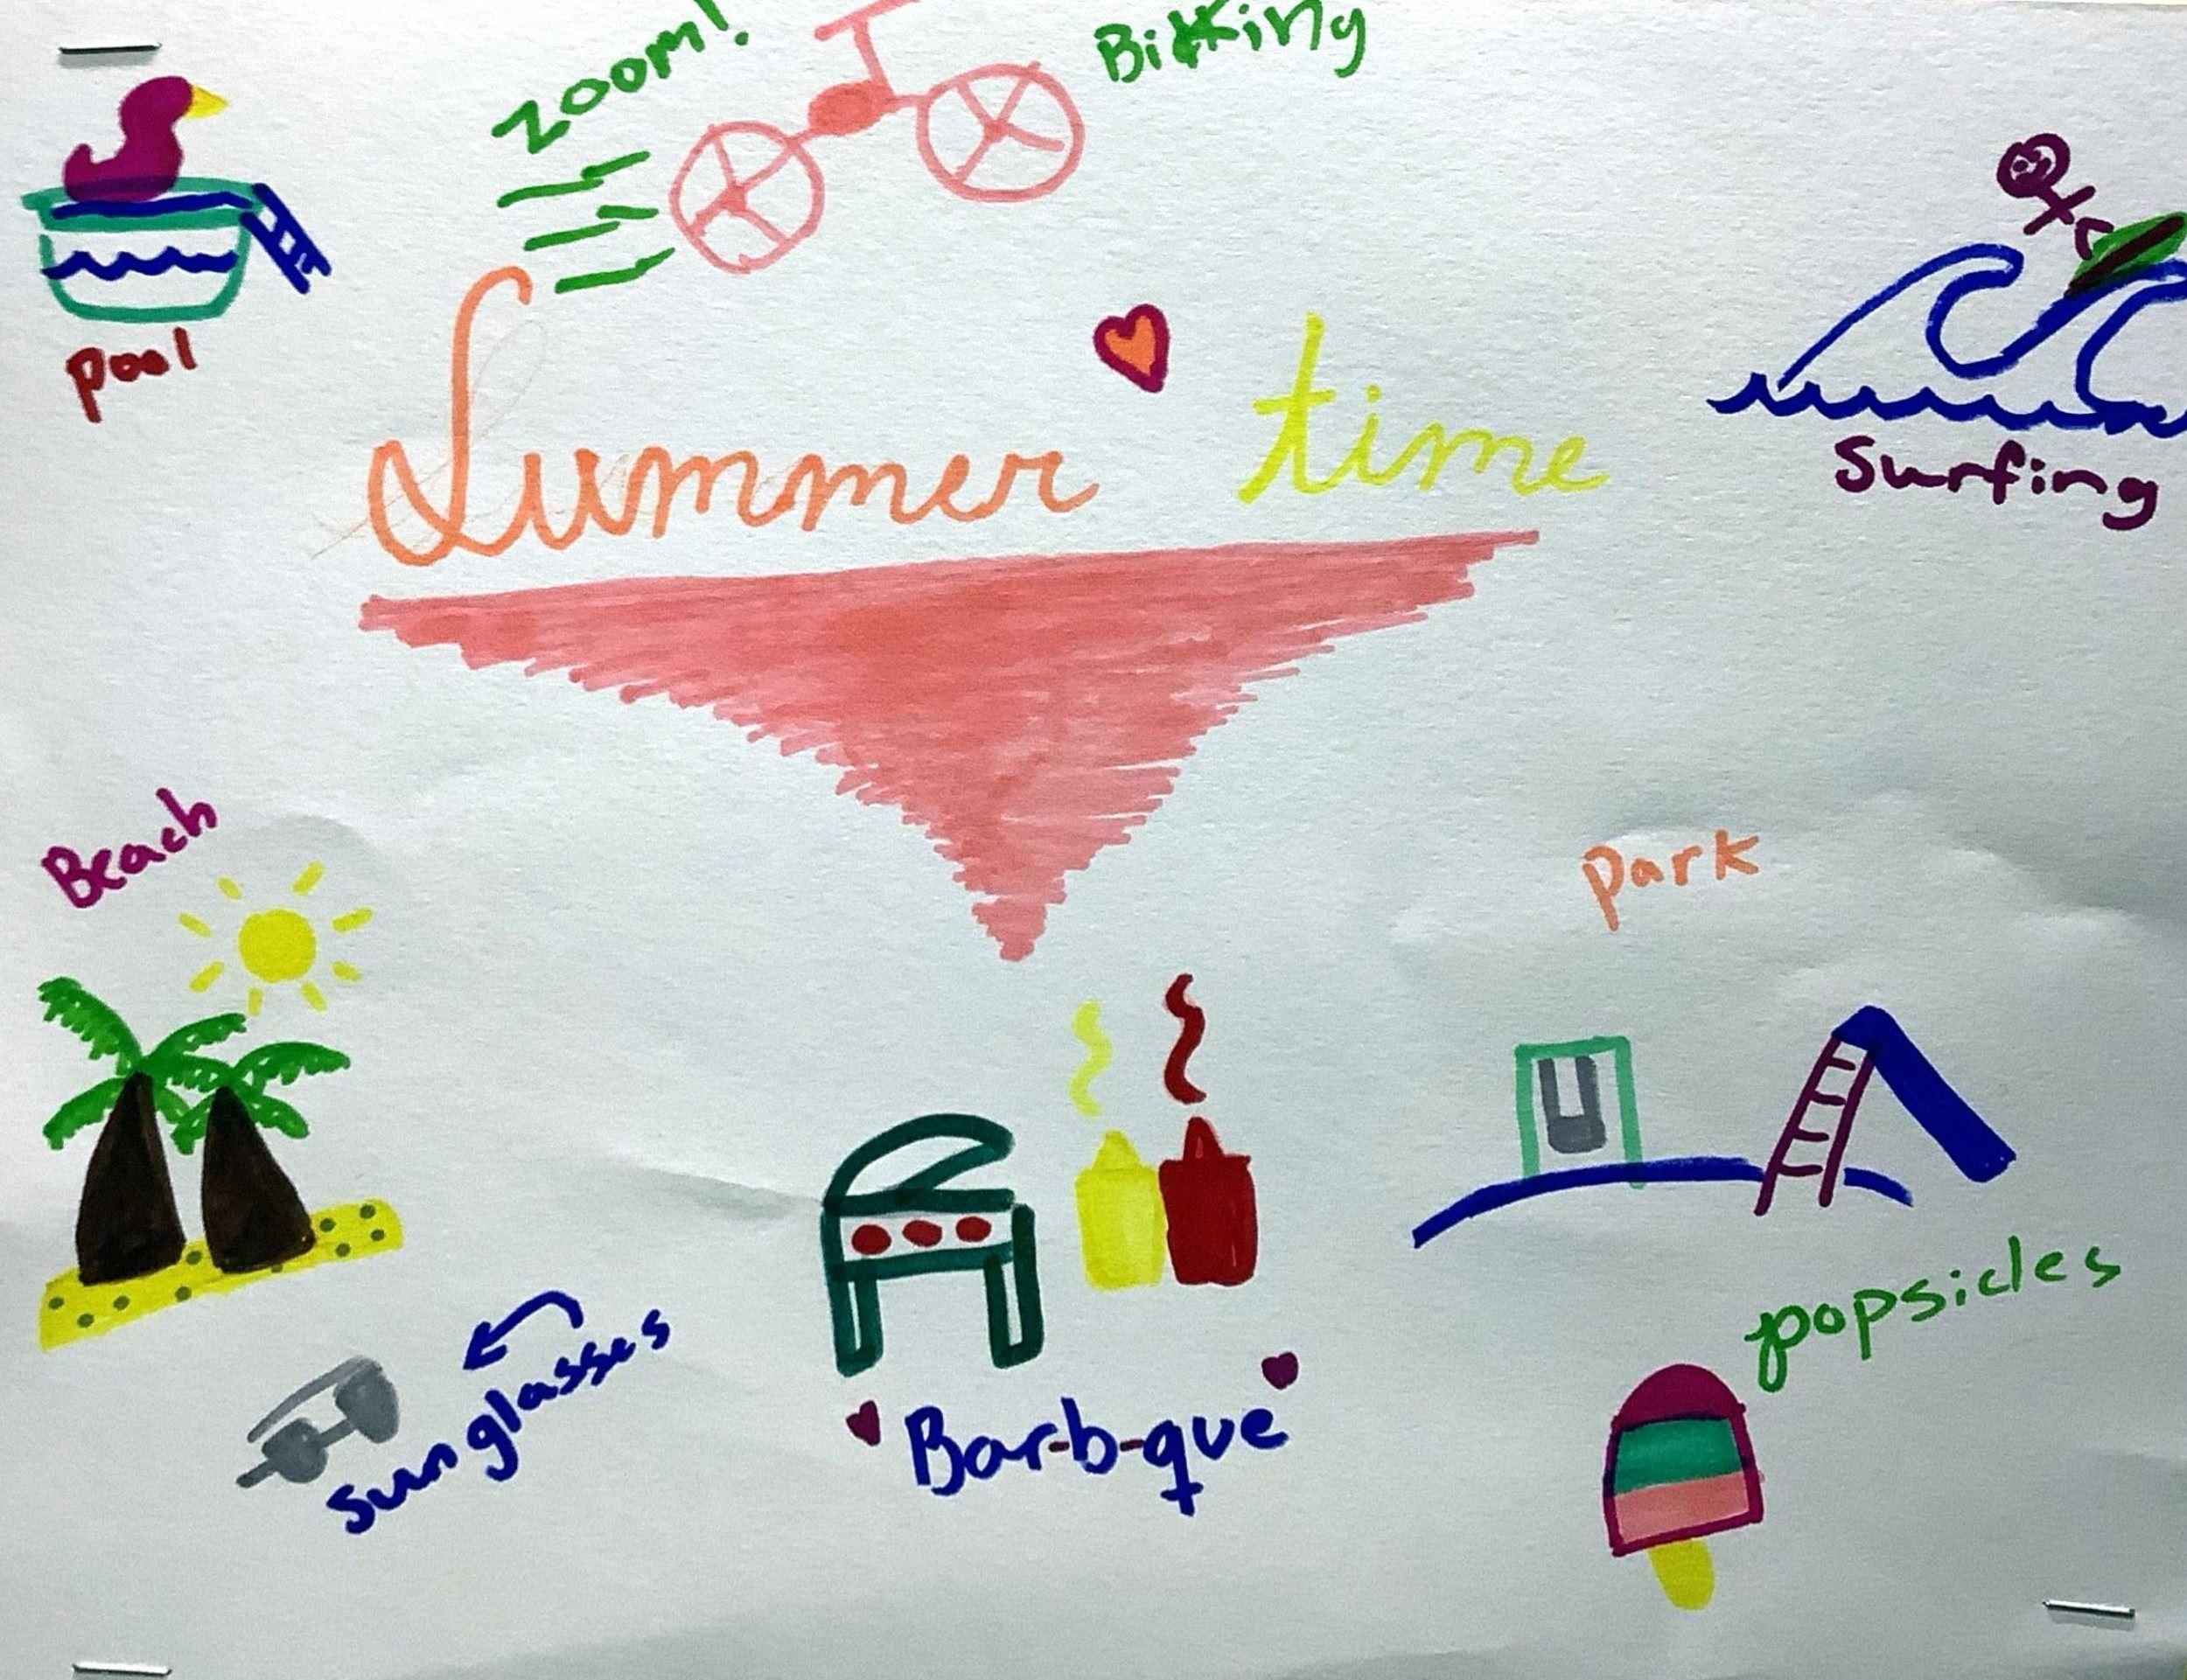 zoom!
Bikking
pool
Summer time
Surfing
Beach
park
popsicles
sunglasses
Bar-b-que